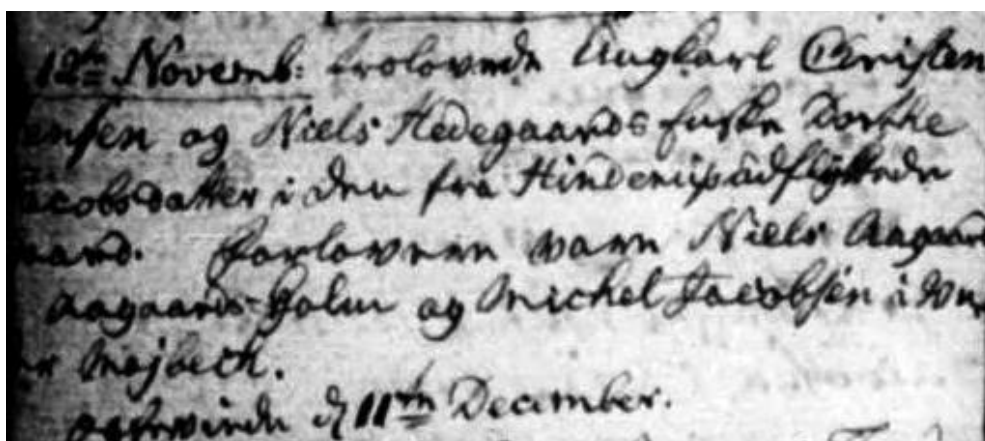 12te Novemb: trolovede Ungkarl Christen
ensen og Niels Hedegaards Enke Dorthe
acobsdatter i den fra Hinderup udflyttede
aard. Forlovere vare Niels Aagaard
Aagaards-Holm og Michel Jacobsen i
er Mojbech.
d 11te December.